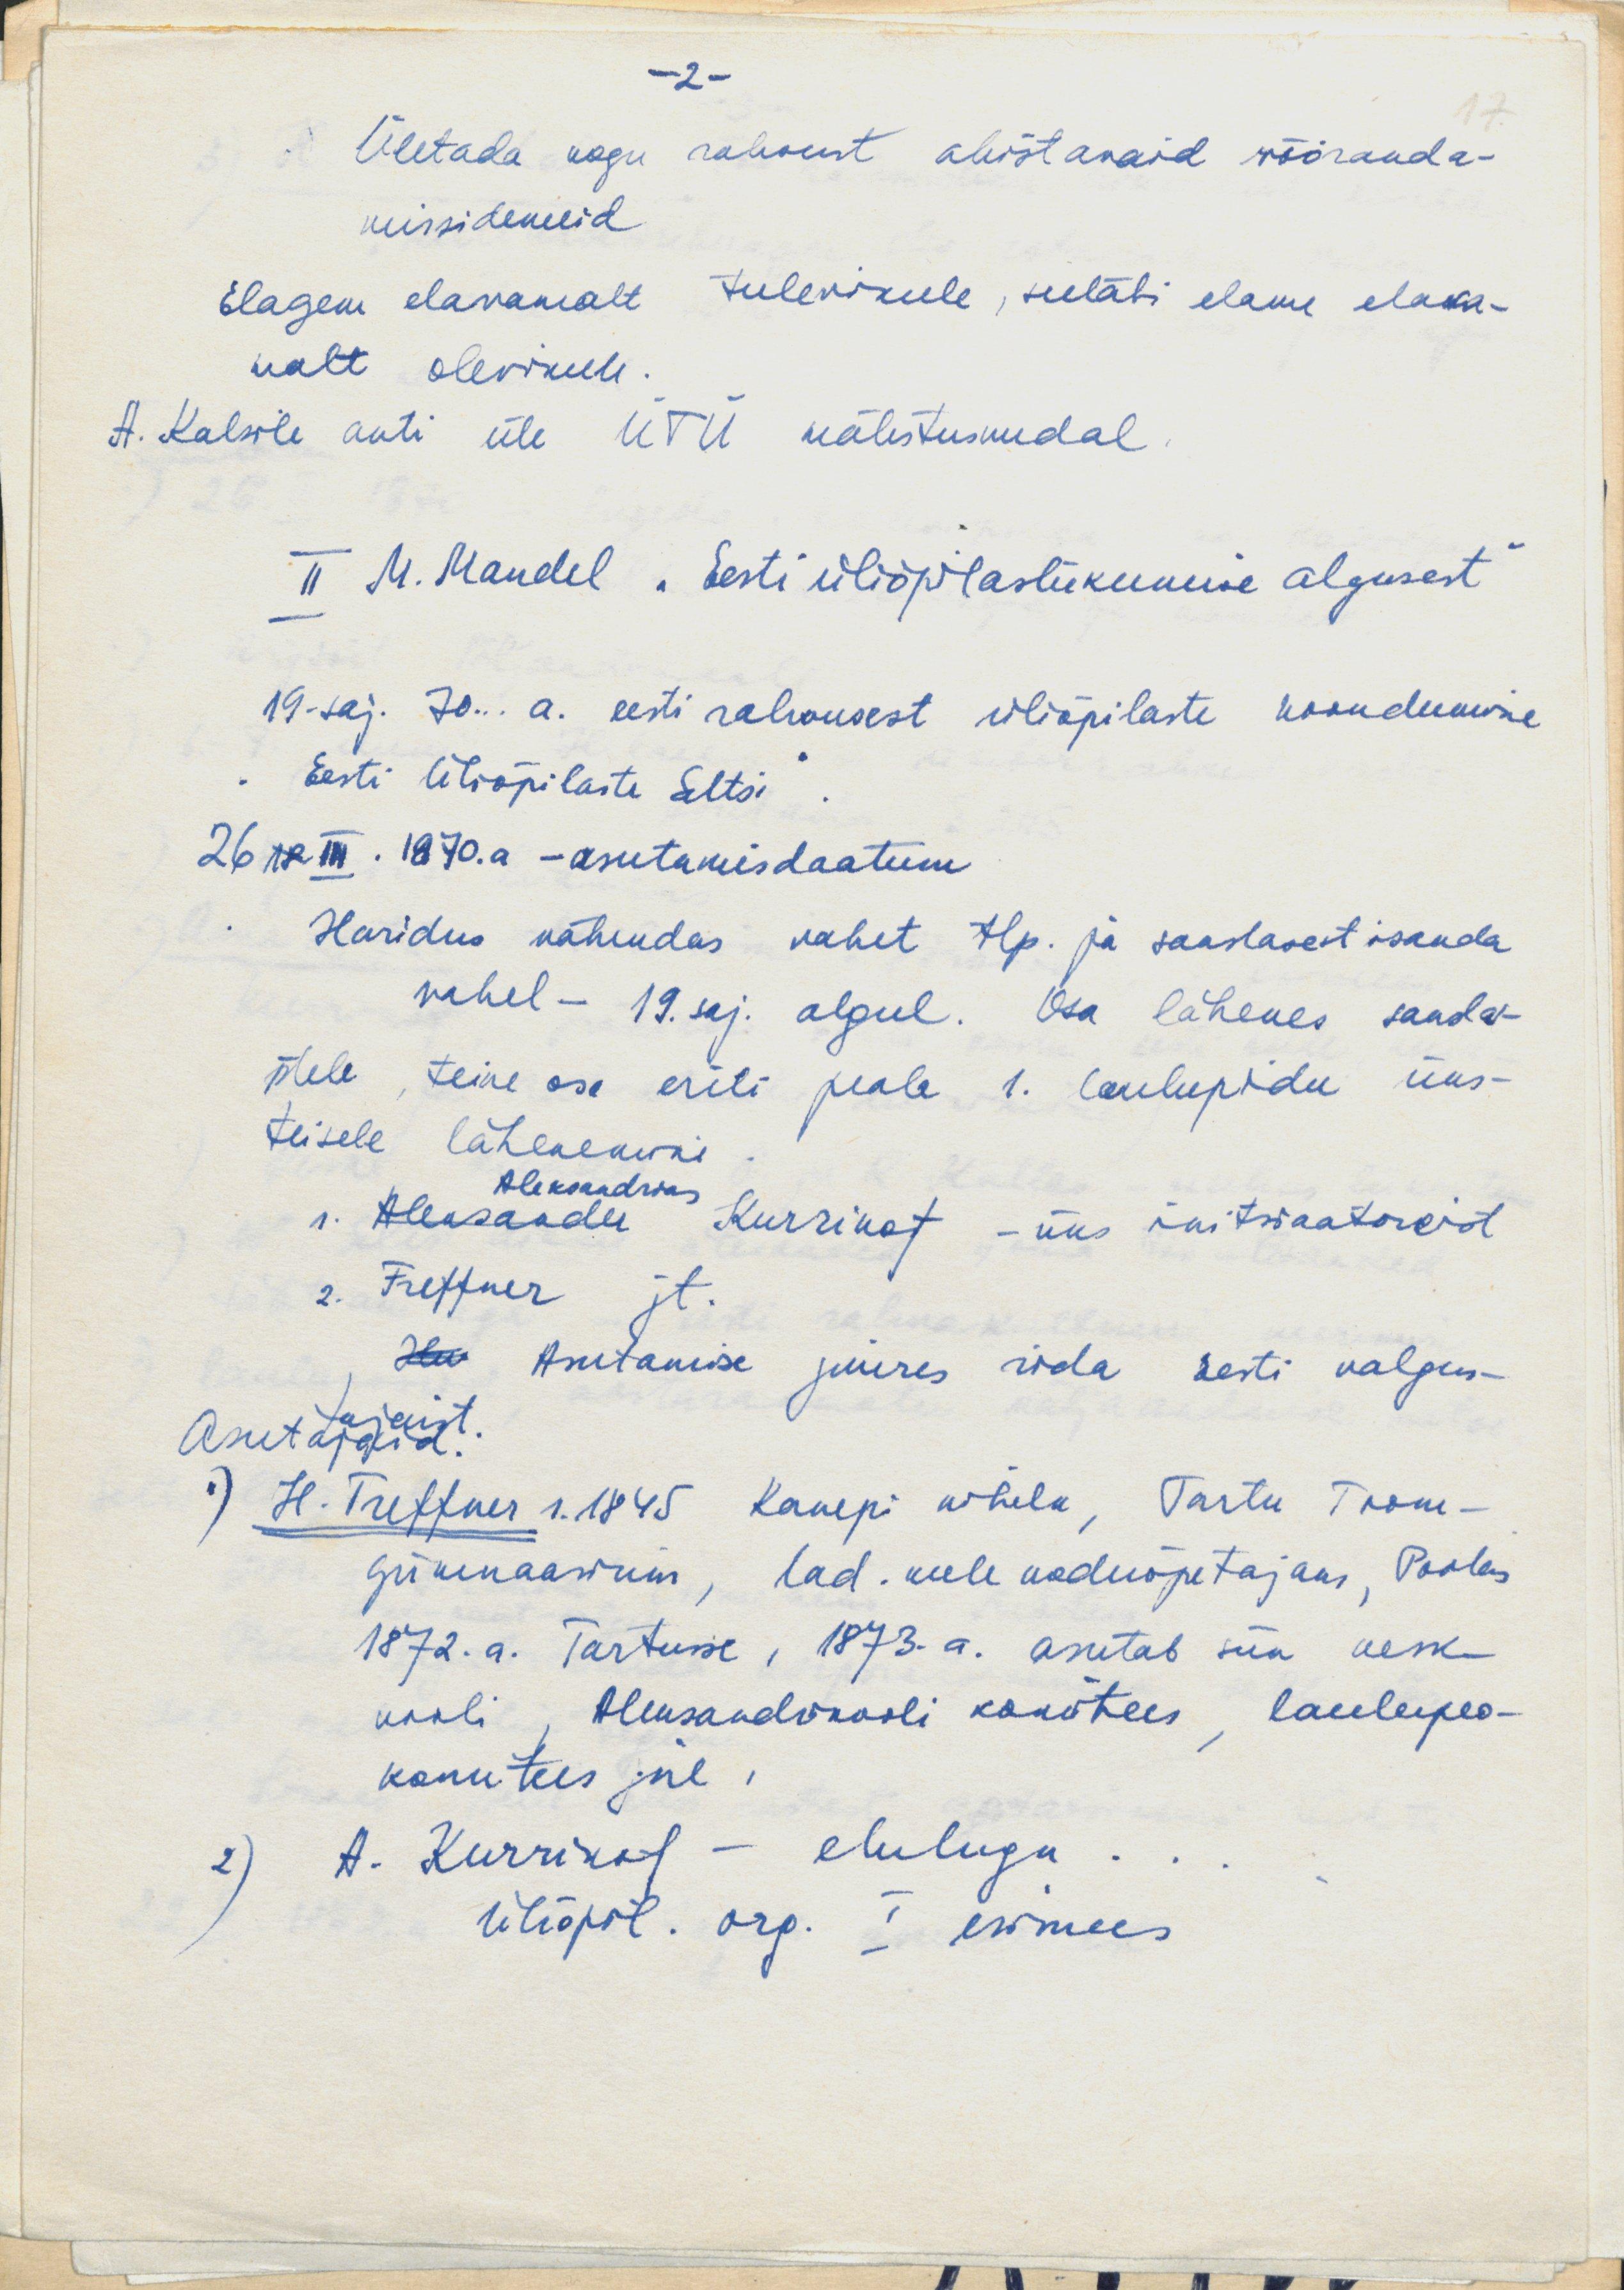 -2-
17.
Ületada kogu rahvust ahistavaid võõranda-
missidemeid
Elagem elavamalt tulevikule, seeläbi elame elava-
malt olevikule.
A. Kalsile anti üle ÜTÜ mälestusmedal.
II M. Mandel "Eesti üliõpilasliikumise algusest"
19-saj. 70... a. eesti rahvusest üliõpilaste koondumine
"Eesti Üliõpilaste Seltsi".
26 III. 1870.a - asutamisdaatum
Haridus vähendas vahet tlp. ja saaslasest isanda
vahel - 19. saj. algul. Osa lähenes sandar-
mele, teine osa eriti peale 1. laulupidu üks-
teisele lähenemine.
Aleksandrias
1. Aleksander Kurrikof - üks initsiaatoreid
2. Treffner jt.
Asutamise juures rida eesti valgus-
tajaist.
Asutajaid:
1) H. Treffner s. 1845 Kanepi kihelk, Tartu Toom-
gümnaasium, lad. keele koduõpetajana, Poolas
1872. a. Tartusse, 1873. a. asutab siin kesk-
kooli, Aleksandrikooli komitees, laulupeo-
komitees jne,
2) A. Kurrikof - elulugu . . .
Üliõpil. org. I esimees